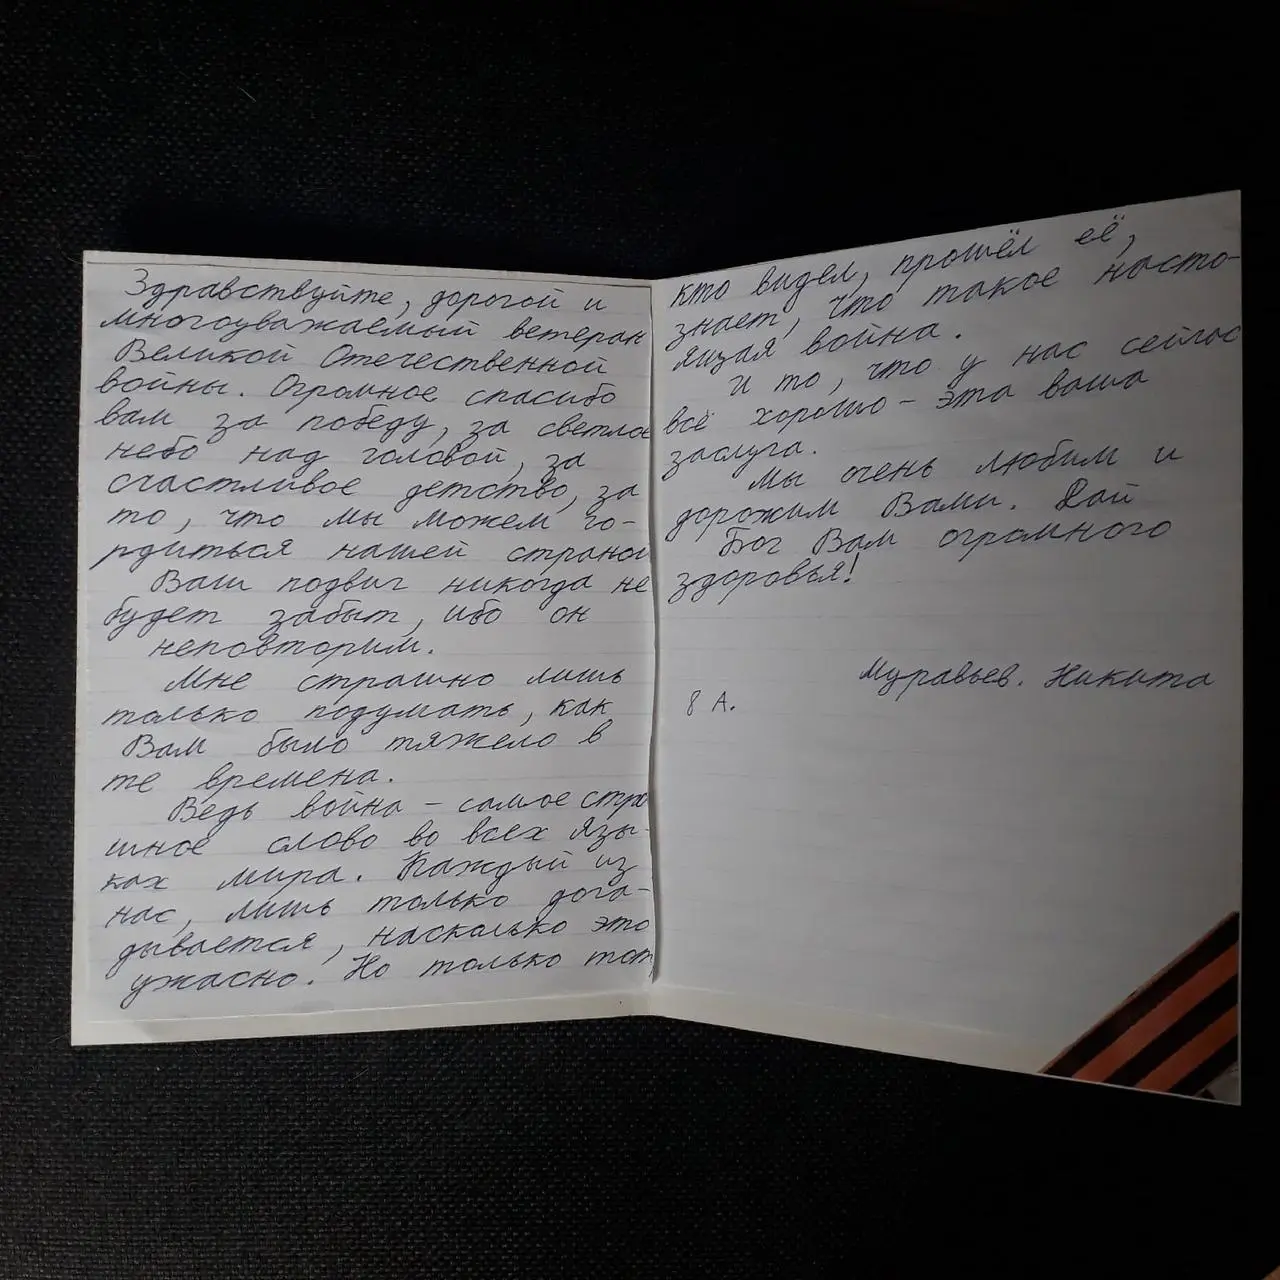 Здравствуйте, дорогой и
многоуважаемый ветеран
Великой Отечественной
войны. Огромное спасибо
вам за победу, за светлое
небо над головой, за
счастливое детство, за
то, что мы можем го-
рдиться нашей страной
Ваш подвиг никогда не
будет забыт, ибо он
неповторим.
Мне страшно лишь
только подумать, как
Вам было тяжело в
те времена.
Ведь война – самое стра
шное слово во всех язы-
ках мира. Каждый из
нас, лишь только дога-
дывается, насколько это
ужасно. Но только тот,
кто видел, прошёл её,
знает, что такое насто-
ящая война.
И то, что у нас сейчас
всё хорошо – эта ваша
заслуга.
Мы очень любим и
дорожим Вами. Дай
Бог Вам огромного
здоровья!
Муравьев. Никита
8 А.